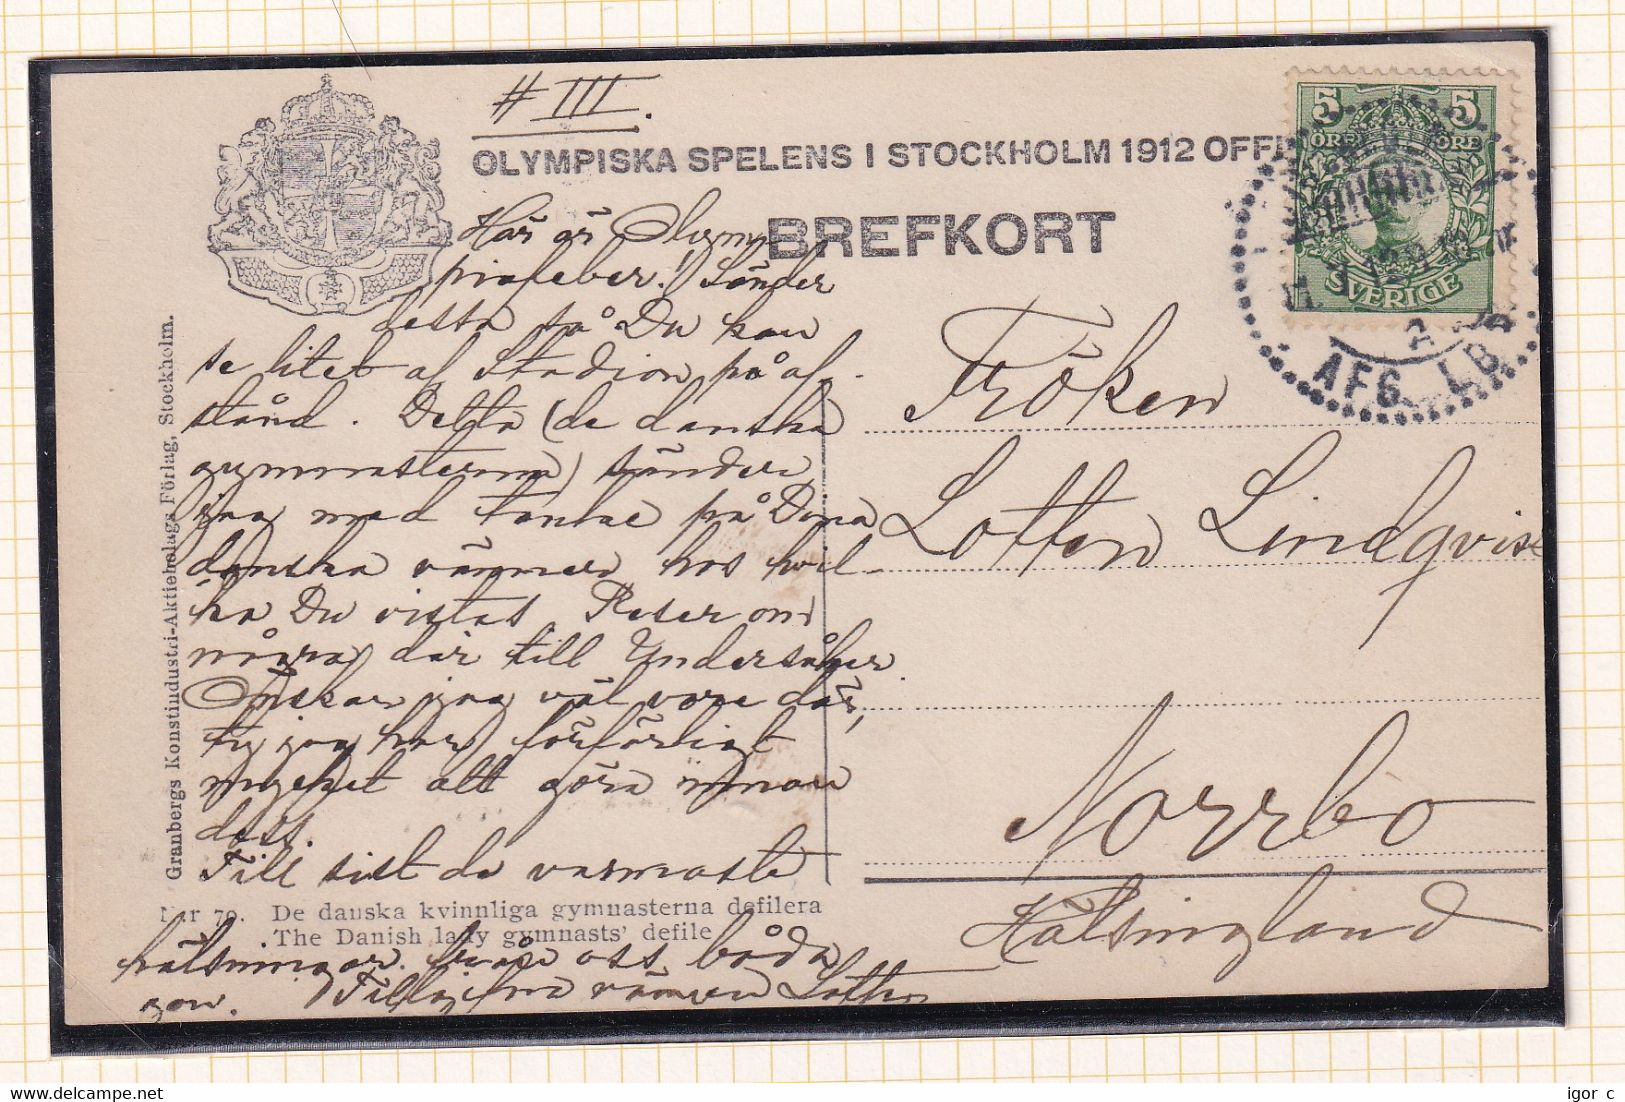 # III.
OLYMPISKA SPELENS I STOCKHOLM 1912 OFFI
BREFKORT
5 5
ÖRE ÖRE
SVERIGE
AFG. LBR
Här är Olym
piafeber! Sänder
detta så Du kan
se litet af Stadion på af-
stånd. Detta (de danska
gymnasterna) sänder
jag med tanke på Dina
danska vänner hos hvil-
ka Du vistas. Reser
några där till Undersåker
Önskar jag väl vore där,
ty jag har förfärligt
mycket att göra
dess.
Till sist de varmaste
hälsningar från oss båda
Tillgifna vännen Lotten
Fröken
Lotten Lindqvist
Norrbo
Hälsingland
Granbergs Konstindustri-Aktiebolags Förlag, Stockholm.
N:r 70. De danska kvinnliga gymnasterna defilera
The Danish lady gymnasts' defile
igor c